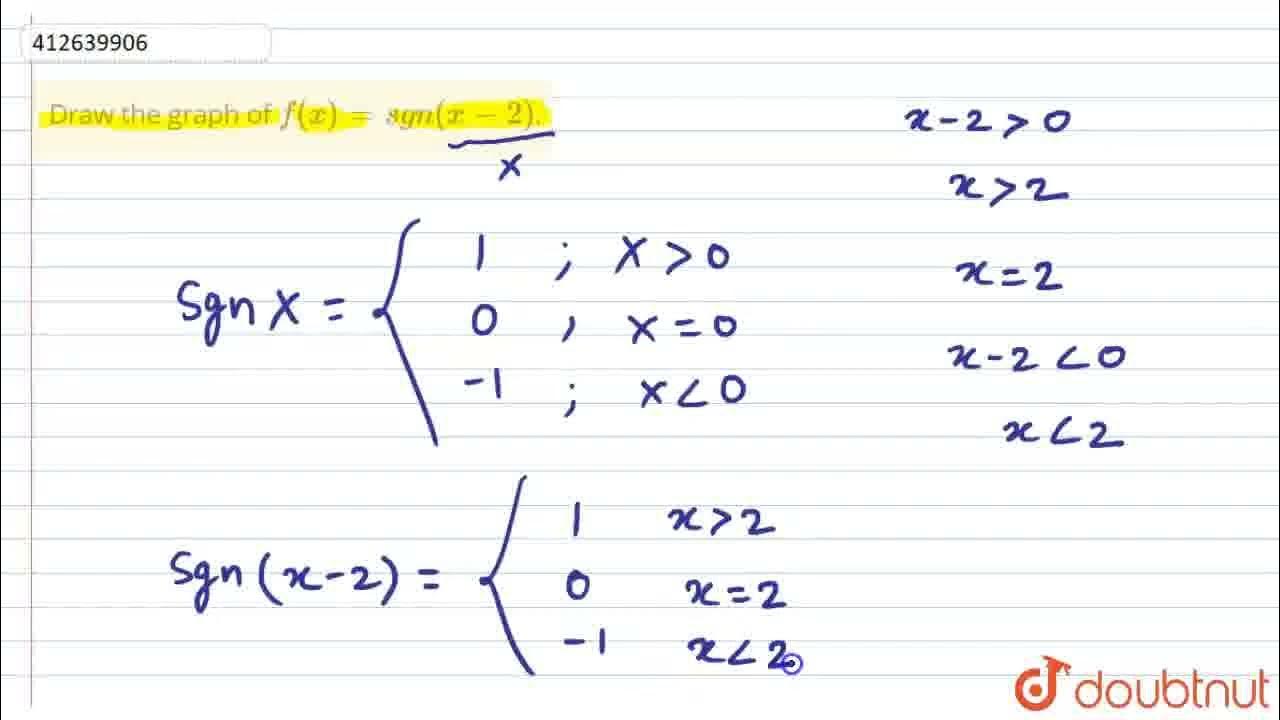 412639906
Draw the graph of f(x) = sgn(x − 2).
x
x-2>0
x>2
Sgn X = { 1 ; X>0
0 , x=0
-1 ; x<0
x=2
x-2<0
x<2
Sgn (x-2) = { 1 x>2
0 x=2
-1 x<2
doubtnut